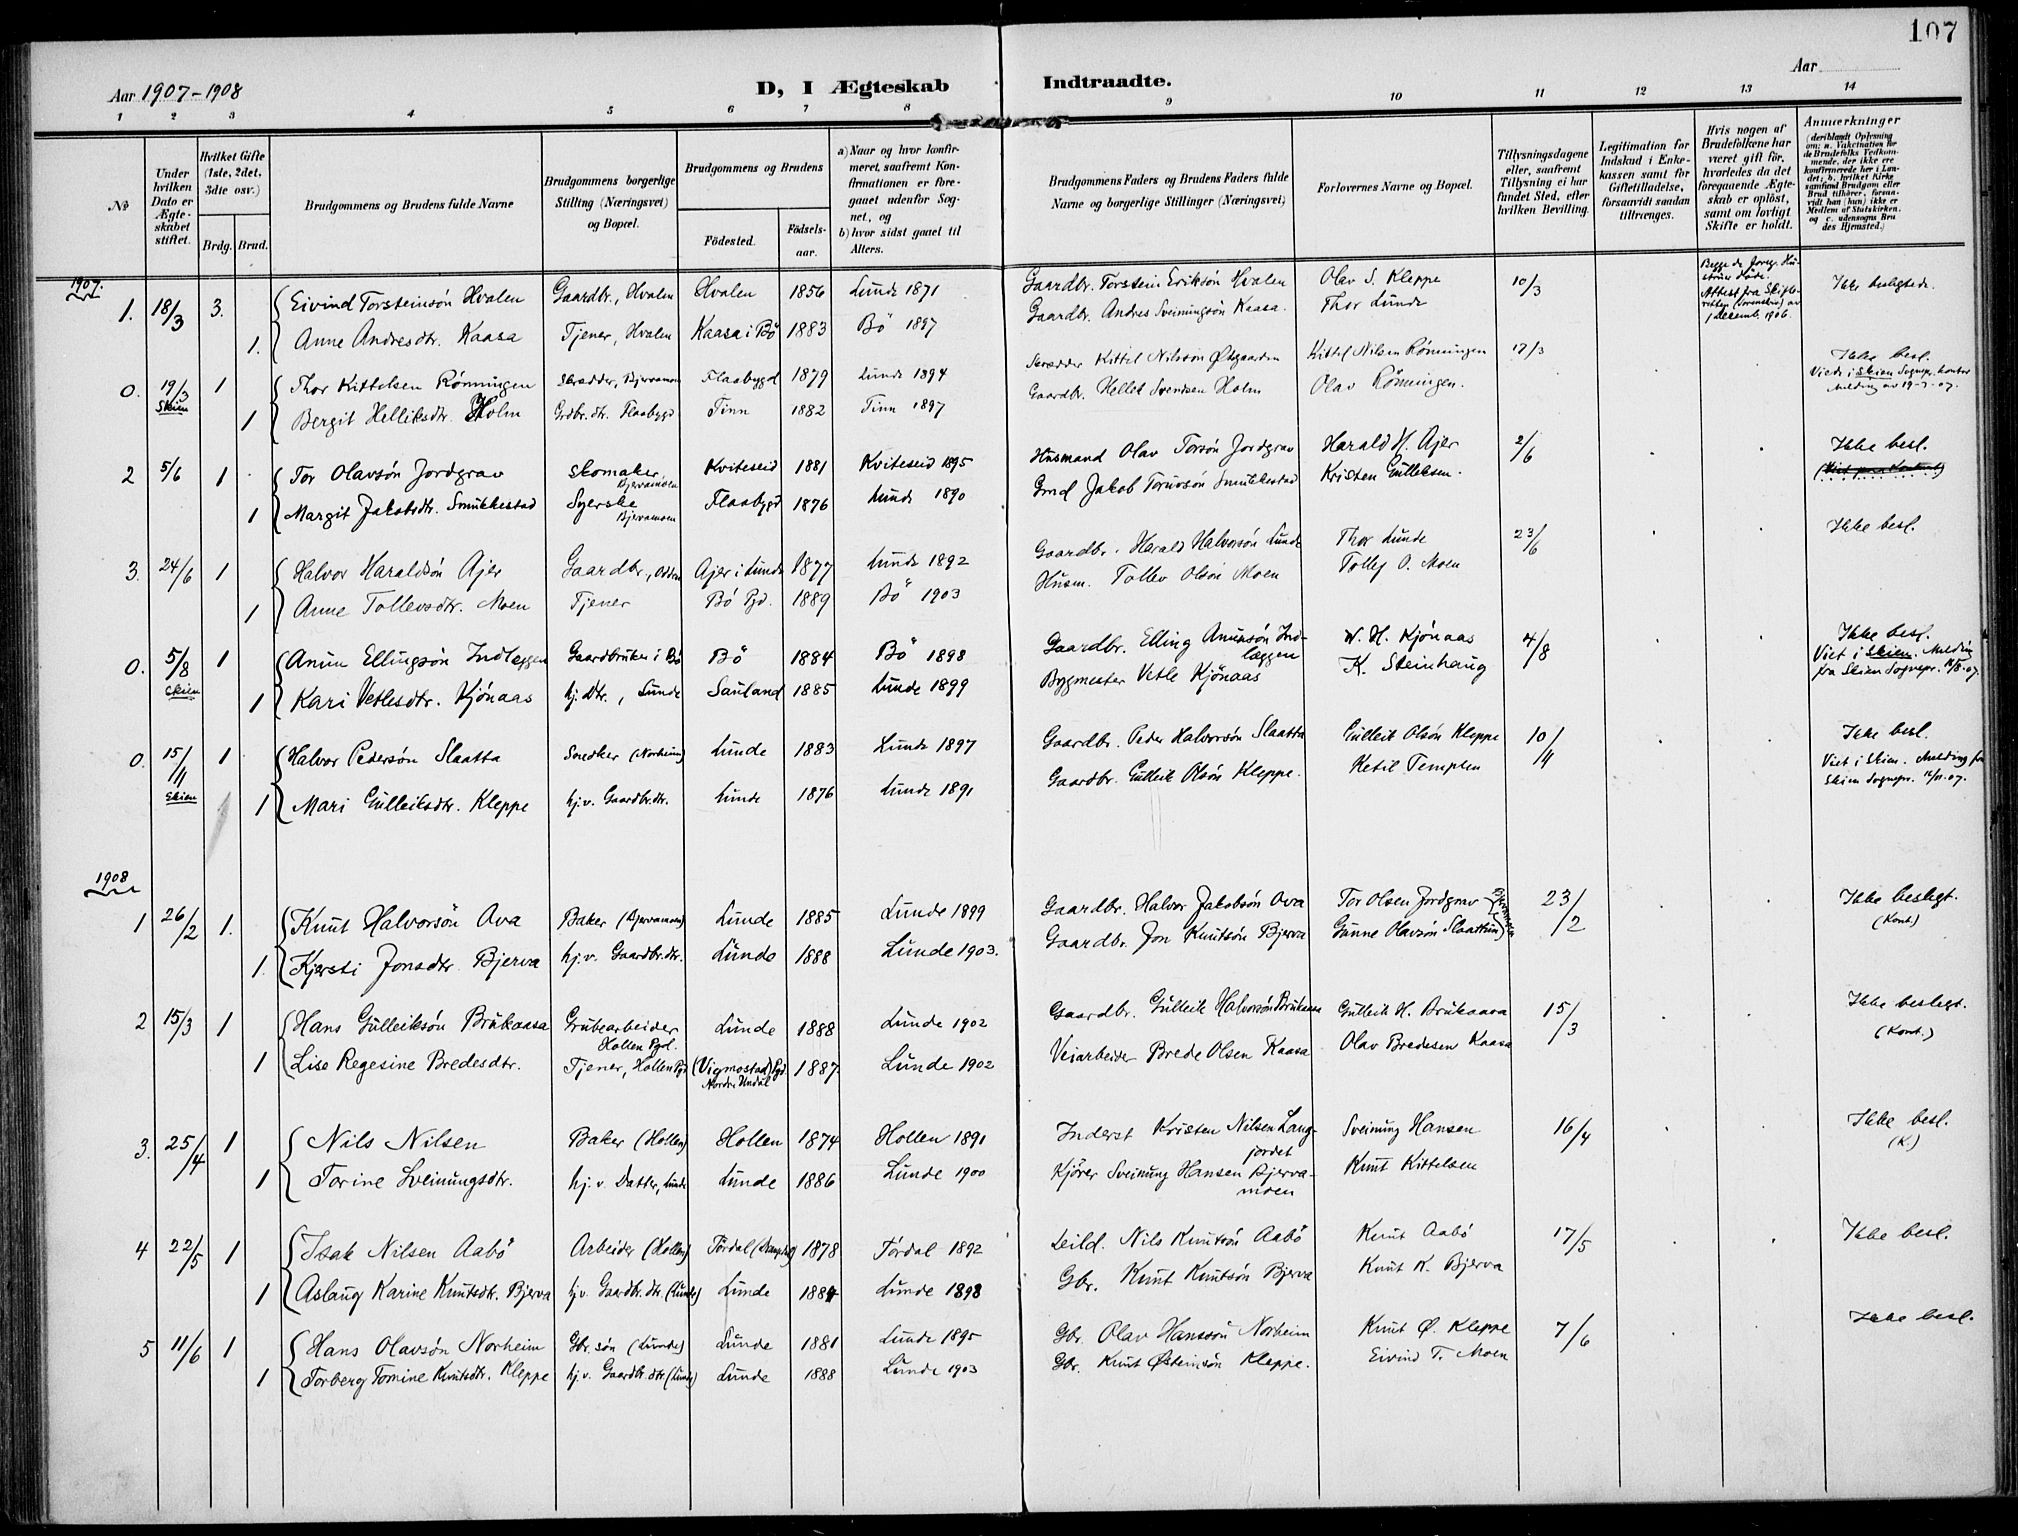 107
Aar 1907-1908
D, I Ægteskab Indtraadte.
Aar
1 2 3 4 5 6 7 8 9 10 11 12 13 14
No
Under hvilken Dato er Ægteskabet stiftet.
Hvilket Gifte (1ste, 2det, 3die osv.)
Brdg. Brud.
Brudgommens og Brudens fulde Navne
Brudgommens borgerlige Stilling (Næringsvei) og Bopæl.
Brudgommens og Brudens
Födested. Födsels-aar.
a) Naar og hvor konfirmeret, saafremt Konfirmationen er foregaaet udenfor Sognet, og
b) hvor sidst gaaet til Alters.
Brudgommens Faders og Brudens Faders fulde Navne og borgerlige Stillinger (Næringsvei)
Forlovernes Navne og Bopæl.
Tillysningsdagene eller, saafremt Tillysning ei har fundet Sted, efter hvilken Bevilling.
Legitimation for Indskud i Enkekassen samt for Giftetilladelse, forsaavidt saadan tiltrænges.
Hvis nogen af Brudefolkene har været gift för, hvorledes da det foregaaende Ægteskab er oplöst, samt om lovligt Skifte er holdt.
Anmærkninger
(deriblandt Oplysning om: a. Vakcination for de Brudefolks Vedkommende, der ikke ere konfirmerede her i Landet; b. hvilket Kirkesamfund Brudgom eller Brud tilhører, forsaavidt han (hun) ikke er Medlem af Statskirken, og c. udensogns Brudes Hjemsted.)
1907.
1. 18/3 3. Eivind Torsteinsön Hvalen Gaardbr., Hvalen Hvalen 1856 Lunde 1871 Gaardbr. Torstein Eriksön Hvalen Olav S. Kleppe 10/3 Begge de foreg. Hustruer döde. Attest fra Skifteretten av 1 decemb. 1906. Ikke beslegtede.
1. Anne Andresdtr. Kaasa Tjener, Hvalen Kaasa i Bö 1883 Bö 1897 Gaardbr. Andres Sveinungsön Kaasa. Thor Lunde
0. 19/3 Skien 1 Thor Kittelsen Rönningen Skrædder, Bjervamoen Flaabygd 1879 Lunde 1894 Skrædder Kittil Nilssön Østgaarden Kittel Nilsen Rönningen 17/3 Ikke besl. Viede i Skien Sognepr. kontor
1 Bergit Helliksdtr. Holm Grdbr. dtr. Flaabygd Tinn 1882 Tinn 1897 Gaardbr. Hellek Svendsen Holm Olav Rönningen.
2 5/6 1 Tor Olavsön Jordgrav Skomaker, Bjervamoen Kviteseid 1881 Kviteseid 1895 Husmand Olav Torsön Jordgrav Harald H. Ajer 2/6 Ikke besl.
1 Margit Jakobsdtr. Smukkestad Syerske Bjervamoen Flaabygd 1876 Lunde 1890 Gmd Jakob Toruvsön Smukkestad Kristen Gulleksen.
3. 24/6 1 Halvor Haraldsön Ajer Gaardbr., Ajer i Lunde 1877 Lunde 1892 Gaardbr. Harald Halvorsön Lunde Thor Lunde 23/6 Ikke besl.
1 Anne Tollevsdtr. Moen Tjener Bö Pgd. 1889 Bö 1903 Husm. Tollev Olsön Moen Tollef O. Moen
0. 5/8 Skien 1 Anun Ellingsön Indlæggen Gaardbruker i Bö Bö 1884 Bö 1898 Gaardbr. Elling Anunsön Indlæggen W. H. Kjönaas 4/8 Ikke besl. Viet i Skien. Melding fra Skien Sognepr.
1 Kari Vetlesdtr. Kjönaas hj. Dtr., Lunde Sauland 1885 Lunde 1899 Bygmester Vetle Kjönaas K. Steinhaug
0. 15/11 Skien 1 Halvor Pedersön Slaatta Snedker (Norheim) Lunde 1883 Lunde 1897 Gaardbr. Peder Halvorsön Slaatta Gulleik Olsön Kleppe 10/11 Ikke besl. Viet i Skien. Melding fra Skien Sognepr.
1 Mari Gulleiksdtr. Kleppe hj.v. Gaardbr.dtr. Lunde 1876 Lunde 1891 Gaardbr. Gulleik Olsön Kleppe. Ketil Tempten
1908
1 26/2 1. Knut Halvorsön Ava Baker (Bjervamoen) Lunde 1885 Lunde 1899 Gaardbr. Halvor Jakobsön Ava Tor Olsen Jordgrav 23/2 Ikke beslegt. (Kont.)
1. Kjersti Jonsdtr. Bjerva hj.v. Gaardbr.dtr. Lunde 1888 Lunde 1903. Gaardbr. Jon Knutsön Bjerva Gunne Olavsön Slaattun Bjervamoen
2 15/3 1 Hans Gulleiksön Brukaasa Grubearbeider Hollen Pgd. Lunde 1888 Lunde 1902 Gaardbr. Gulleik Halvorsön Brukaasa Gulleik H. Brukaasa 15/3 Ikke beslegt. (Kont.)
1 Lise Regesine Bredesdtr. Tjener, Hollen Pgd (Vigmostad) Pgd. Nordre Undal 1887 Lunde 1902 Veiarbeider Brede Olsen Kaasa Olav Bredesen Kaasa
3. 25/4 1 Nils Nilsen Baker (Hollen) Hollen 1874 Hollen 1891 Inderst Kristen Nilsen Langjordet Sveinung Hansen 16/4 Ikke besl. (K.)
1 Torine Sveinungsdtr. hj. v. Datter, Lunde Lunde 1886 Lunde 1900 Kjörer Sveinung Hansen Bjervamoen Knut Kittelsen
4 22/5 1 Isak Nilsen Aabö Arbeider (Hollen) Tördal (Drangedal) 1878 Tördal 1892 Leild. Nils Knutsön Aabö Knut Aabö 17/5 Ikke besl.
1 Aslaug Karine Knutsdtr. Bjerva hj.v. Gaardbr. dtr. (Lunde) Lunde 1884 Lunde 1898 Gbr. Knut Knutsön Bjerva Knut K. Bjerva
5 11/6 1 Hans Olavsön Norheim Gbr. sön (Lunde) Lunde 1881 Lunde 1895 Gbr. Olav Hanssön Norheim Knut Ø. Kleppe 7/6 Ikke besl.
1 Torberg Tomine Knutsdtr. Kleppe hj.v. Gaardbr.dtr (Lunde) Lunde 1888 Lunde 1903 Gbr. Knut Østeinsön Kleppe. Eivind T. Moen